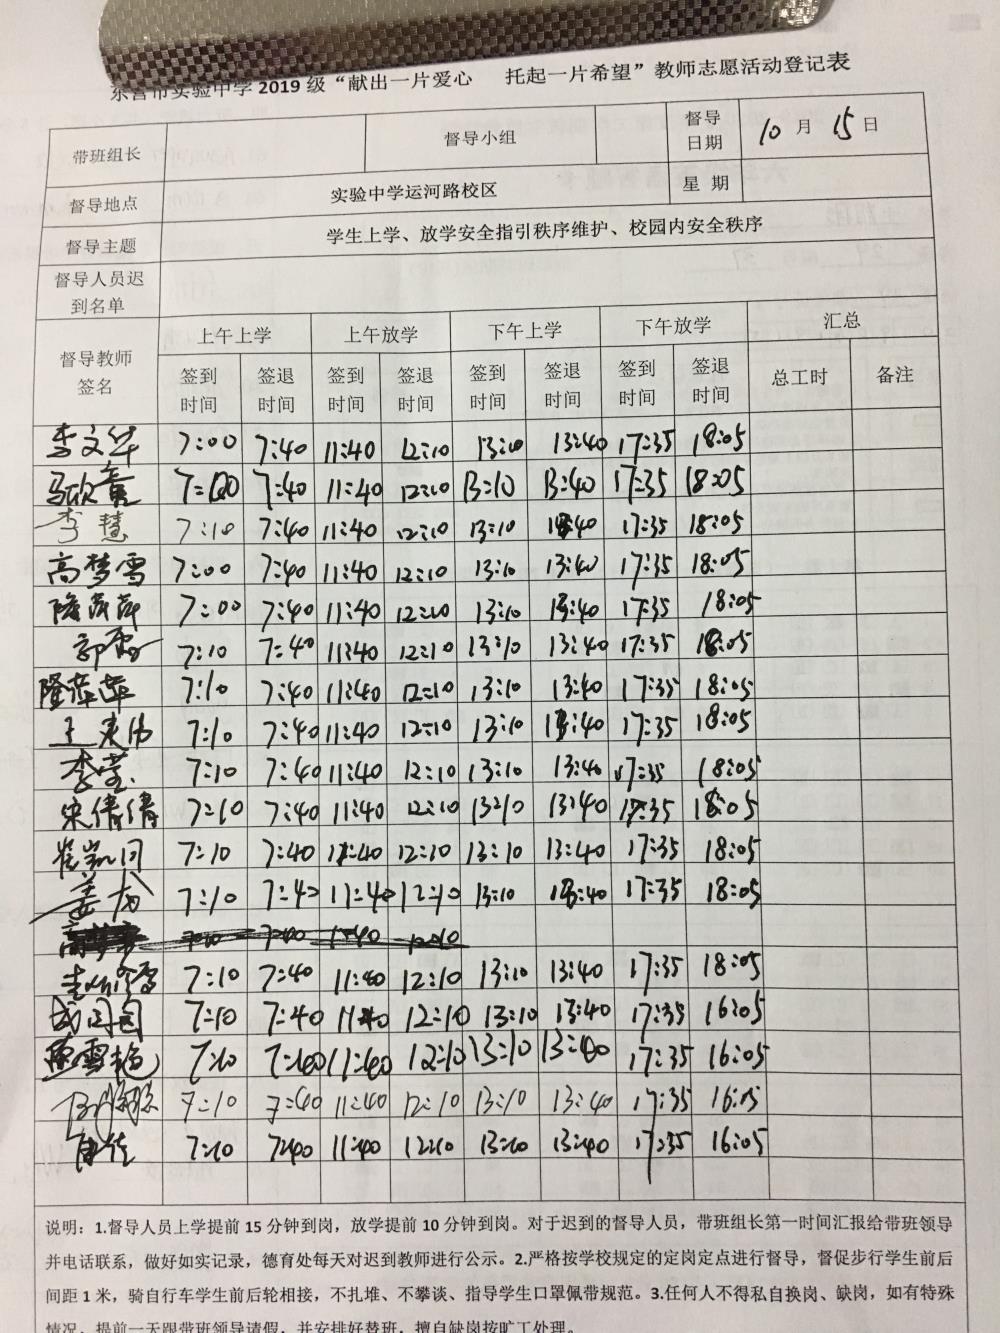 东营市实验中学 2019 级“献出一片爱心 托起一片希望”教师志愿活动登记表
带班组长 督导小组 督导日期 10 月 15 日
督导地点 实验中学运河路校区 星 期
督导主题 学生上学、放学安全指引秩序维护、校园内安全秩序
督导人员迟到名单
督导教师签名 上午上学 上午放学 下午上学 下午放学 汇总
签到时间 签退时间 签到时间 签退时间 签到时间 签退时间 签到时间 签退时间 总工时 备注
李文华 7:00 7:40 11:40 12:10 13:10 13:40 17:35 18:05
马欣 7:00 7:40 11:40 12:10 13:10 13:40 17:35 18:05
李慧 7:10 7:40 11:40 12:10 13:10 13:40 17:35 18:05
高梦雪 7:00 7:40 11:40 12:10 13:10 13:40 17:35 18:05
7:00 7:40 11:40 12:10 13:10 13:40 17:35 18:05
郭 7:10 7:40 11:40 12:10 13:10 13:40 17:35 18:05
隆萍萍 7:10 7:40 11:40 12:10 13:10 13:40 17:35 18:05
王 7:10 7:40 11:40 12:10 13:10 13:40 17:35 18:05
李莹 7:10 7:40 11:40 12:10 13:10 13:40 17:35 18:05
宋倩倩 7:10 7:40 11:40 12:10 13:10 13:40 17:35 18:05
崔凯同 7:10 7:40 11:40 12:10 13:10 13:40 17:35 18:05
姜 7:10 7:40 11:40 12:10 13:10 13:40 17:35 18:05
7:10 7:40 11:40 12:10
7:10 7:40 11:40 12:10 13:10 13:40 17:35 18:05
7:10 7:40 11:40 12:10 13:10 13:40 17:35 16:05
雪艳 7:10 7:40 11:40 12:10 13:10 13:40 17:35 16:05
7:10 7:40 11:40 12:10 13:10 13:40 17:35 16:05
7:10 7:40 11:40 12:10 13:10 13:40 17:35 16:05
说明：1.督导人员上学提前 15 分钟到岗，放学提前 10 分钟到岗。对于迟到的督导人员，带班组长第一时间汇报给带班领导
并电话联系，做好如实记录，德育处每天对迟到教师进行公示。2.严格按学校规定的定岗定点进行督导，督促步行学生前后
间距 1 米，骑自行车学生前后轮相接，不扎堆、不攀谈、指导学生口罩佩带规范。3.任何人不得私自换岗、缺岗，如有特殊
情况，提前一天跟带班领导请假，并安排好替班，擅自缺岗按旷工处理。